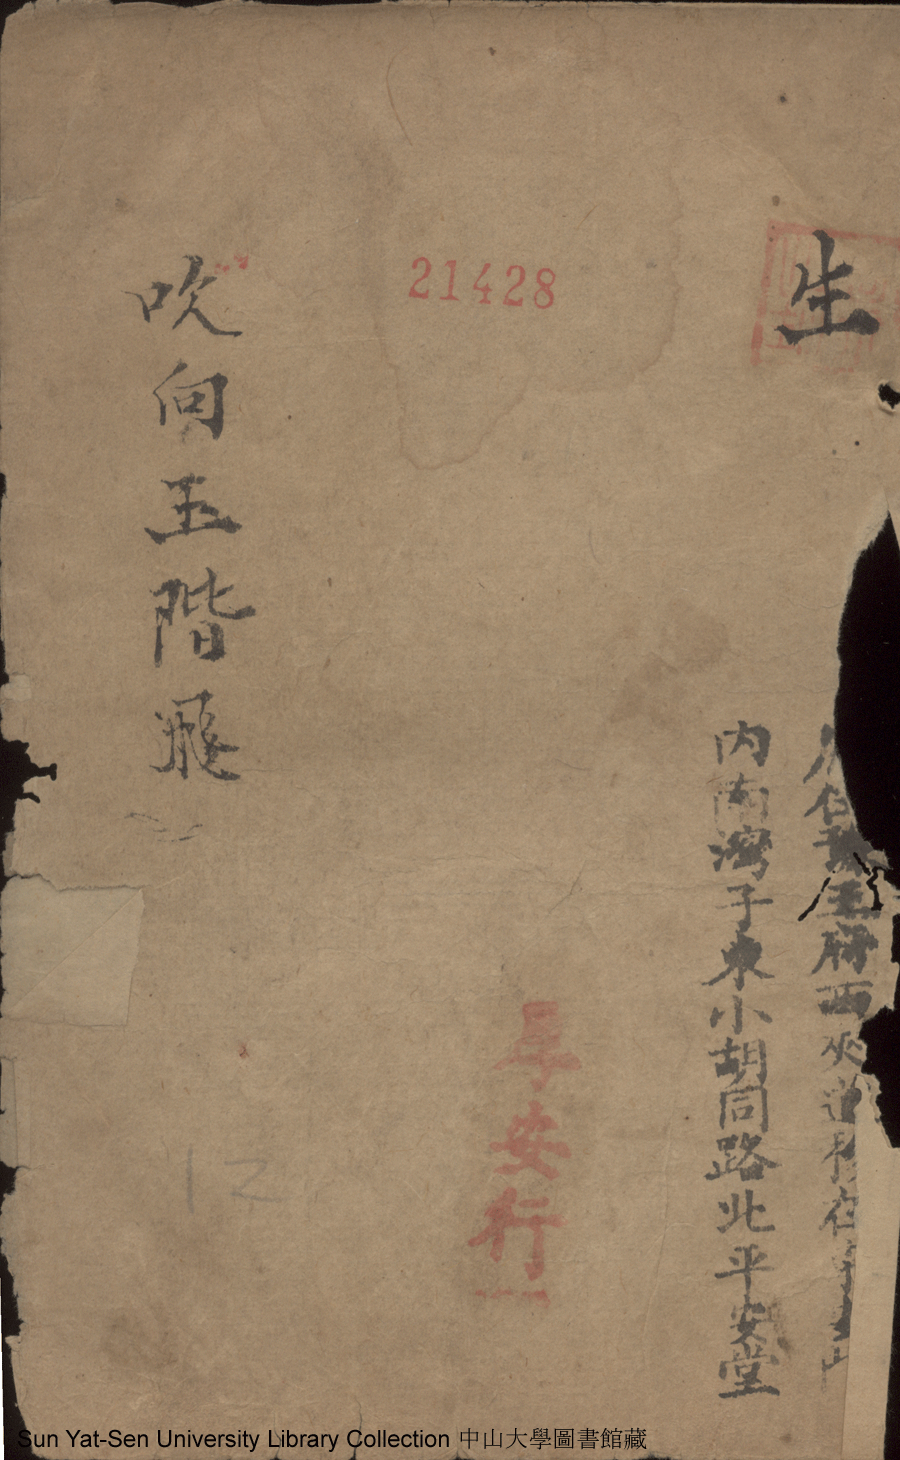 生
王府西夾道
內南灣子東小胡同路北平安堂
21428
安行
吹向玉階飛
12
Sun Yat-Sen University Library Collection 中山大學圖書館藏